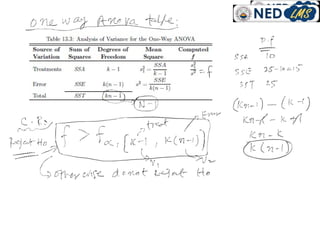 one way Anova table:
NED LMS
Table 13.3: Analysis of Variance for the One-Way ANOVA
Source of Variation Sum of Squares Degrees of Freedom Mean Square Computed f
Treatments SSA k − 1 s₁² = SSA / k − 1 s₁² / s² = f
Error SSE k(n − 1) s² = SSE / k(n − 1)
Total SST kn − 1
N-1
D.f
SSA 10
SSE 25-10=15
SST 25
(kn-1) - (k-1)
kn-1 - k+1
kn-k
k(n-1)
C.R:
Reject H₀
treat
Error
f > fα, [k-1, k(n-1)]
v₁ v₂
otherwise do not reject H₀